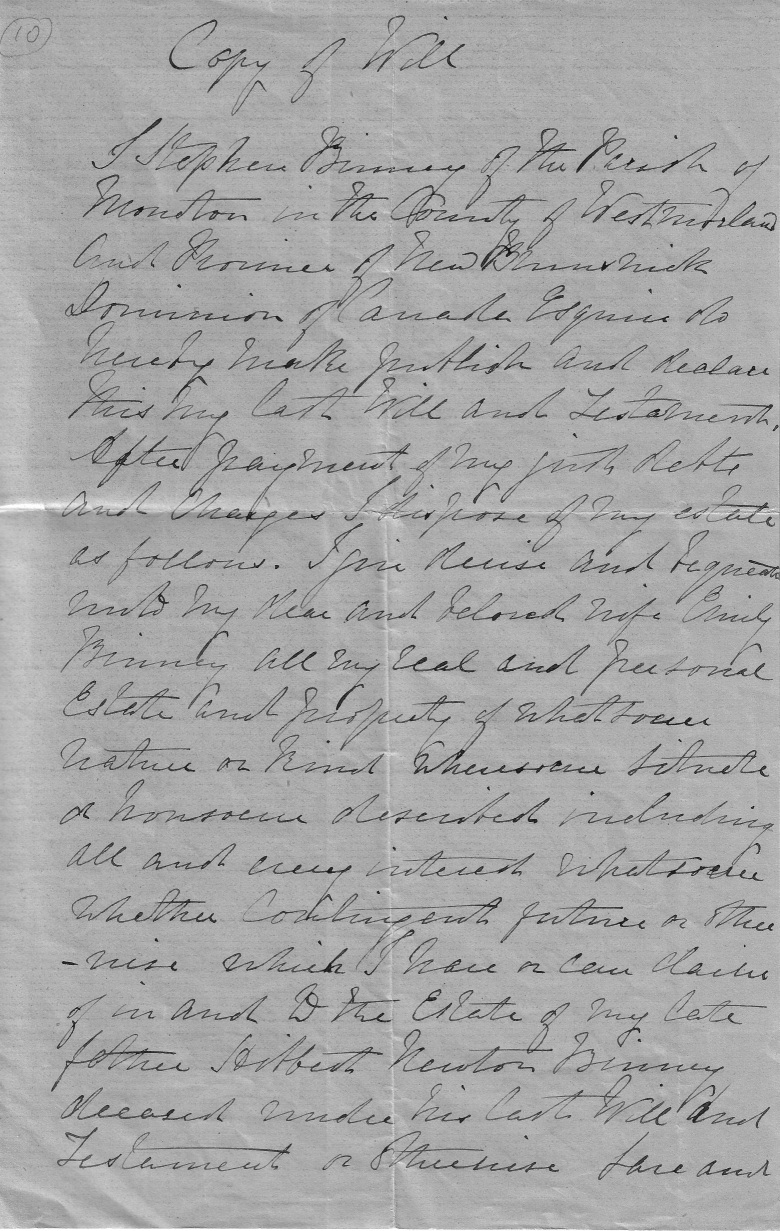 10
Copy of Will
I Stephen Binney of the Parish of
Moncton in the County of Westmorland
and Province of New Brunswick
Dominion of Canada Esquire do
hereby make publish and declare
this my last Will and Testament.
After payment of my just debts
and charges I dispose of my estate
as follows. I give devise and bequeath
unto my dear and beloved wife Emily
Binney all my real and personal
Estate and property of whatsoever
nature or kind wheresoever situate
or howsoever described including
all and every interest whatsoever
whether Contingent future or other
-wise which I have or can claim
of in and to the Estate of my late
father Hibbert Newton Binney
deceased under his last Will and
Testament or otherwise save and